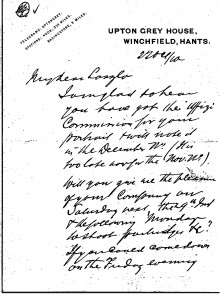 UPTON GREY HOUSE,
WINCHFIELD, HANTS.
22 Oct/10
My dear Laszlo
I am glad to hear
you have got the Uffizi
Commission for your
portrait & will note it
in the December No. (it is
too late now for the Nov. No.)
Will you give me the pleasure
of your Company on
Saturday next the 29th Inst
& the following Monday
to shoot partridges &c
If you could come down
on the Friday evening